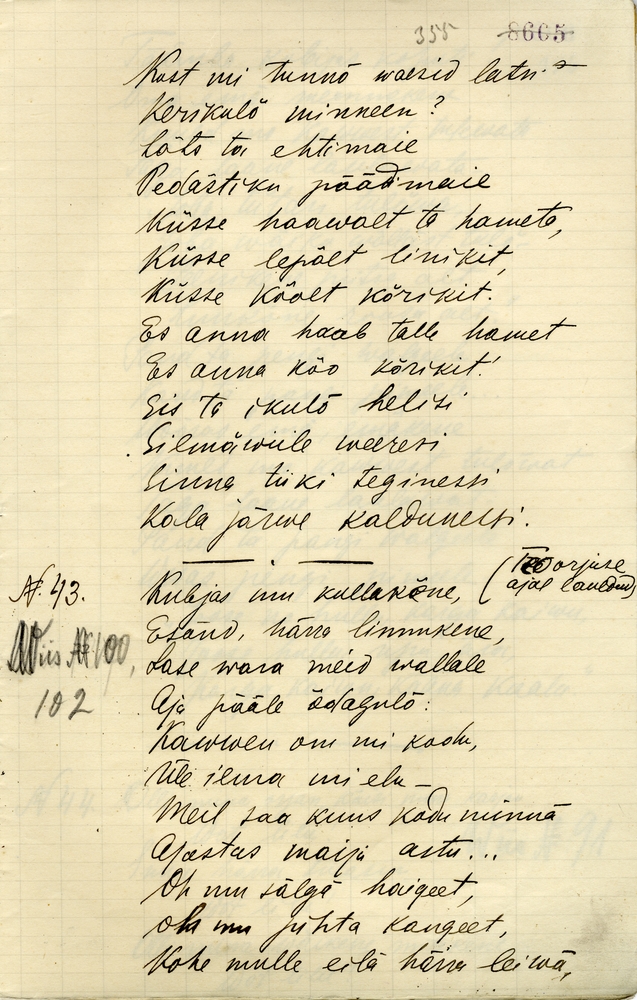 355 8665
Kost mi tunnõ waesid latsi
Kerikulõ minneen?
Läts ta ehtimaie
Pedästiku pöädimaie
Küsse haawalt ta hameta,
Küsse lepält linikit,
Küsse kõolt kõrikit.
Es anna haab talle hamet
Es anna kõo kõrikit!
Sis ta ikulõ helisi
Silmäwiile weeresi
Sinna tiiki teginessi
Kala järwe kaldunessi.
N. 43. Kubjas mu kullakõne, (Teoorjuse
ajal lauldud)
Wiis № 100, Esänd, härra linnukene,
102 Lase wara meid wallale
Aja pääle õdagulõ:
Kawwen om mi kodu,
Üle ilma mi elu —
Meil saa kuus kodu minnä
Ajastus maija astu...
Oh mu sälgä haigeet,
oh mu pihta kangeet,
Kohe mulle eilä härra leiwä,